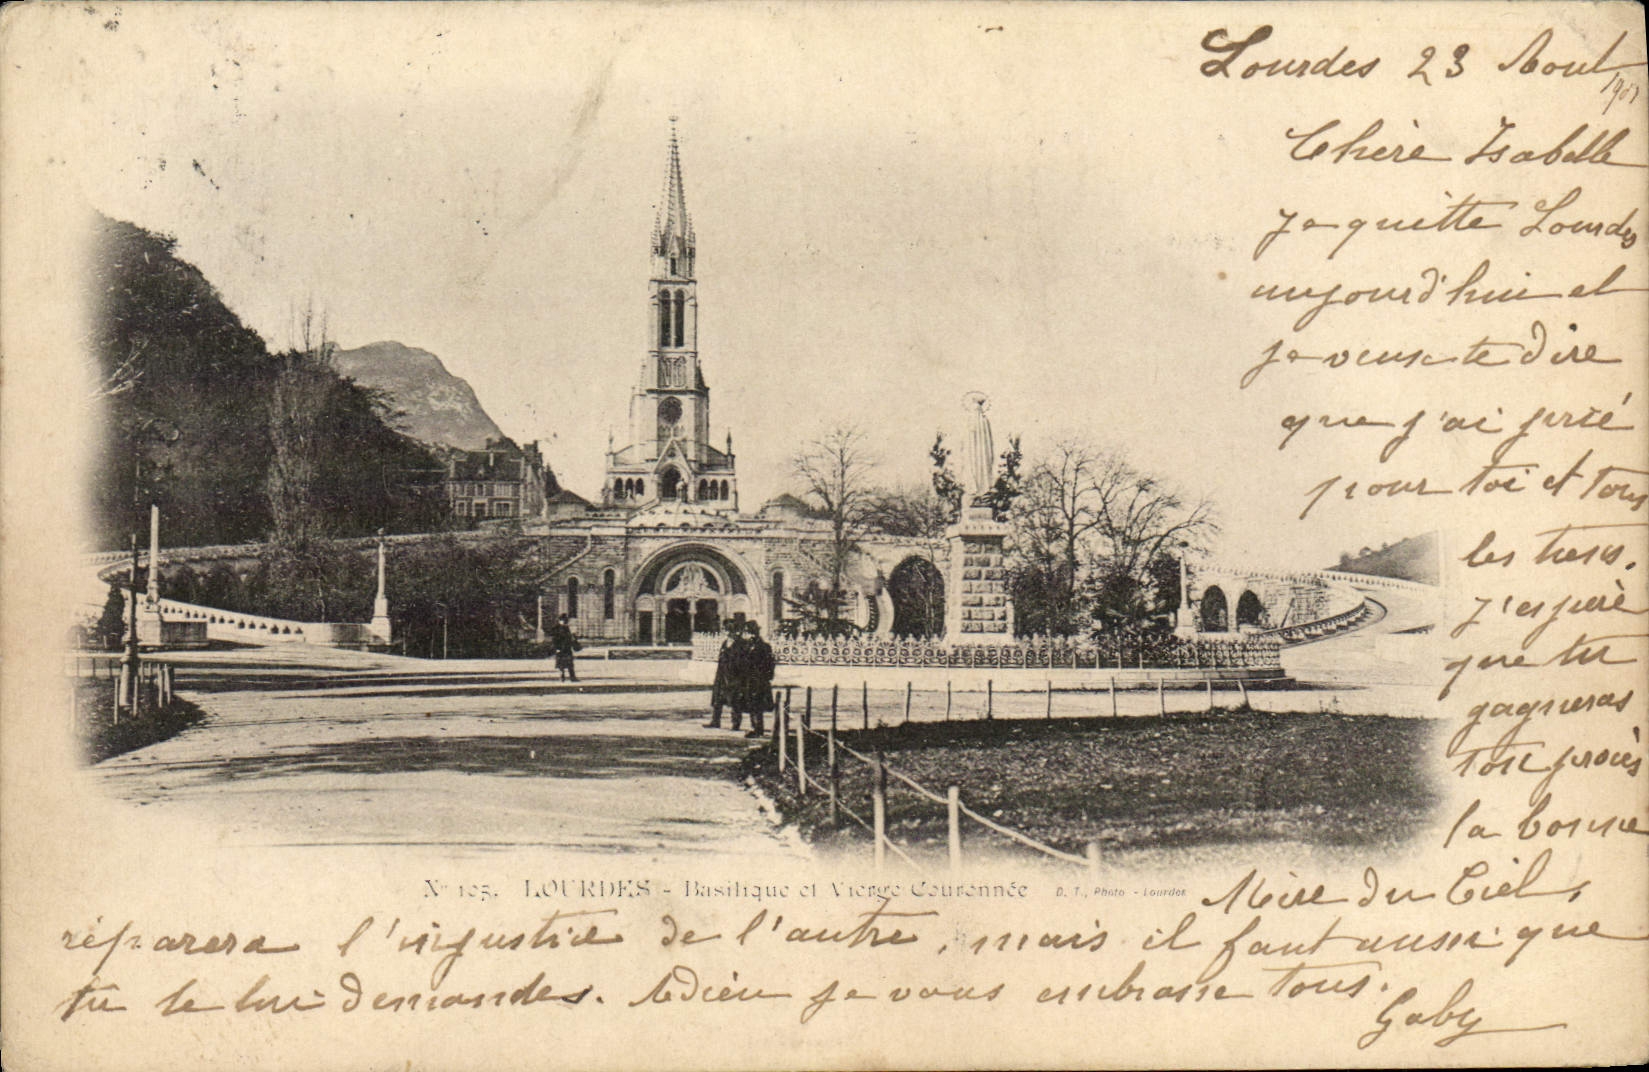 Lourdes 23 Aout
Chère Isabelle
je quitte Lourdes
aujourd'hui et
je veux te dire
que j'ai prié
pour toi et tous
les tiens.
j'espère
que tu
gagneras
ton procès
la bonne
Mère du Ciel,
réparera l'injustice de l'autre, mais il faut aussi que
tu le lui demandes. Adieu je vous embrasse tous.
Gaby
No 105. LOURDES - Basilique et Vierge Couronnée D. T., Photo - Lourdes